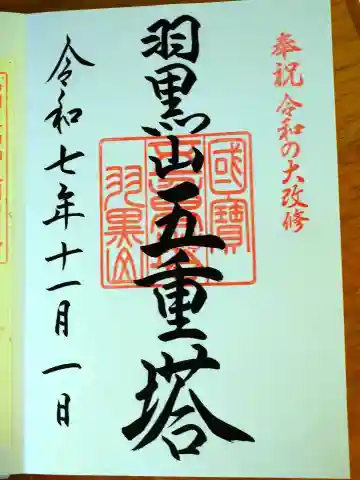 奉祝 令和の大改修
羽黒山五重塔
國寶
五重塔
羽黒山
令和七年十一月一日